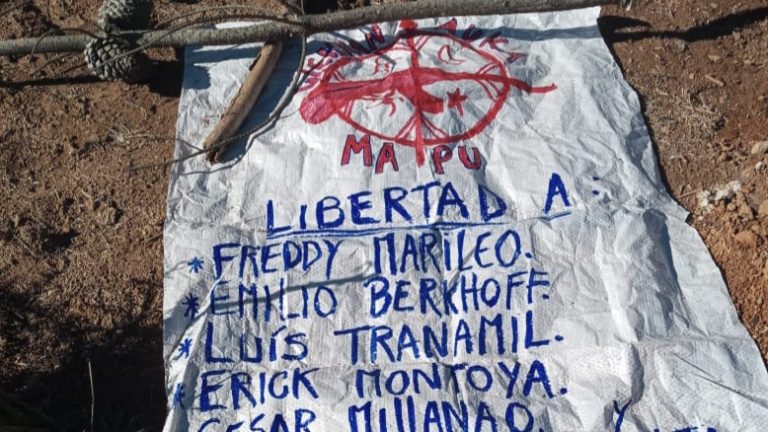 WEICHAN AUKA
MAPU
LIBERTAD A:
* FREDDY MARILEO.
* EMILIO BERKHOFF.
* LUÍS TRANAMIL.
* ERICK MONTOYA.
CESAR MILLANAO. Y